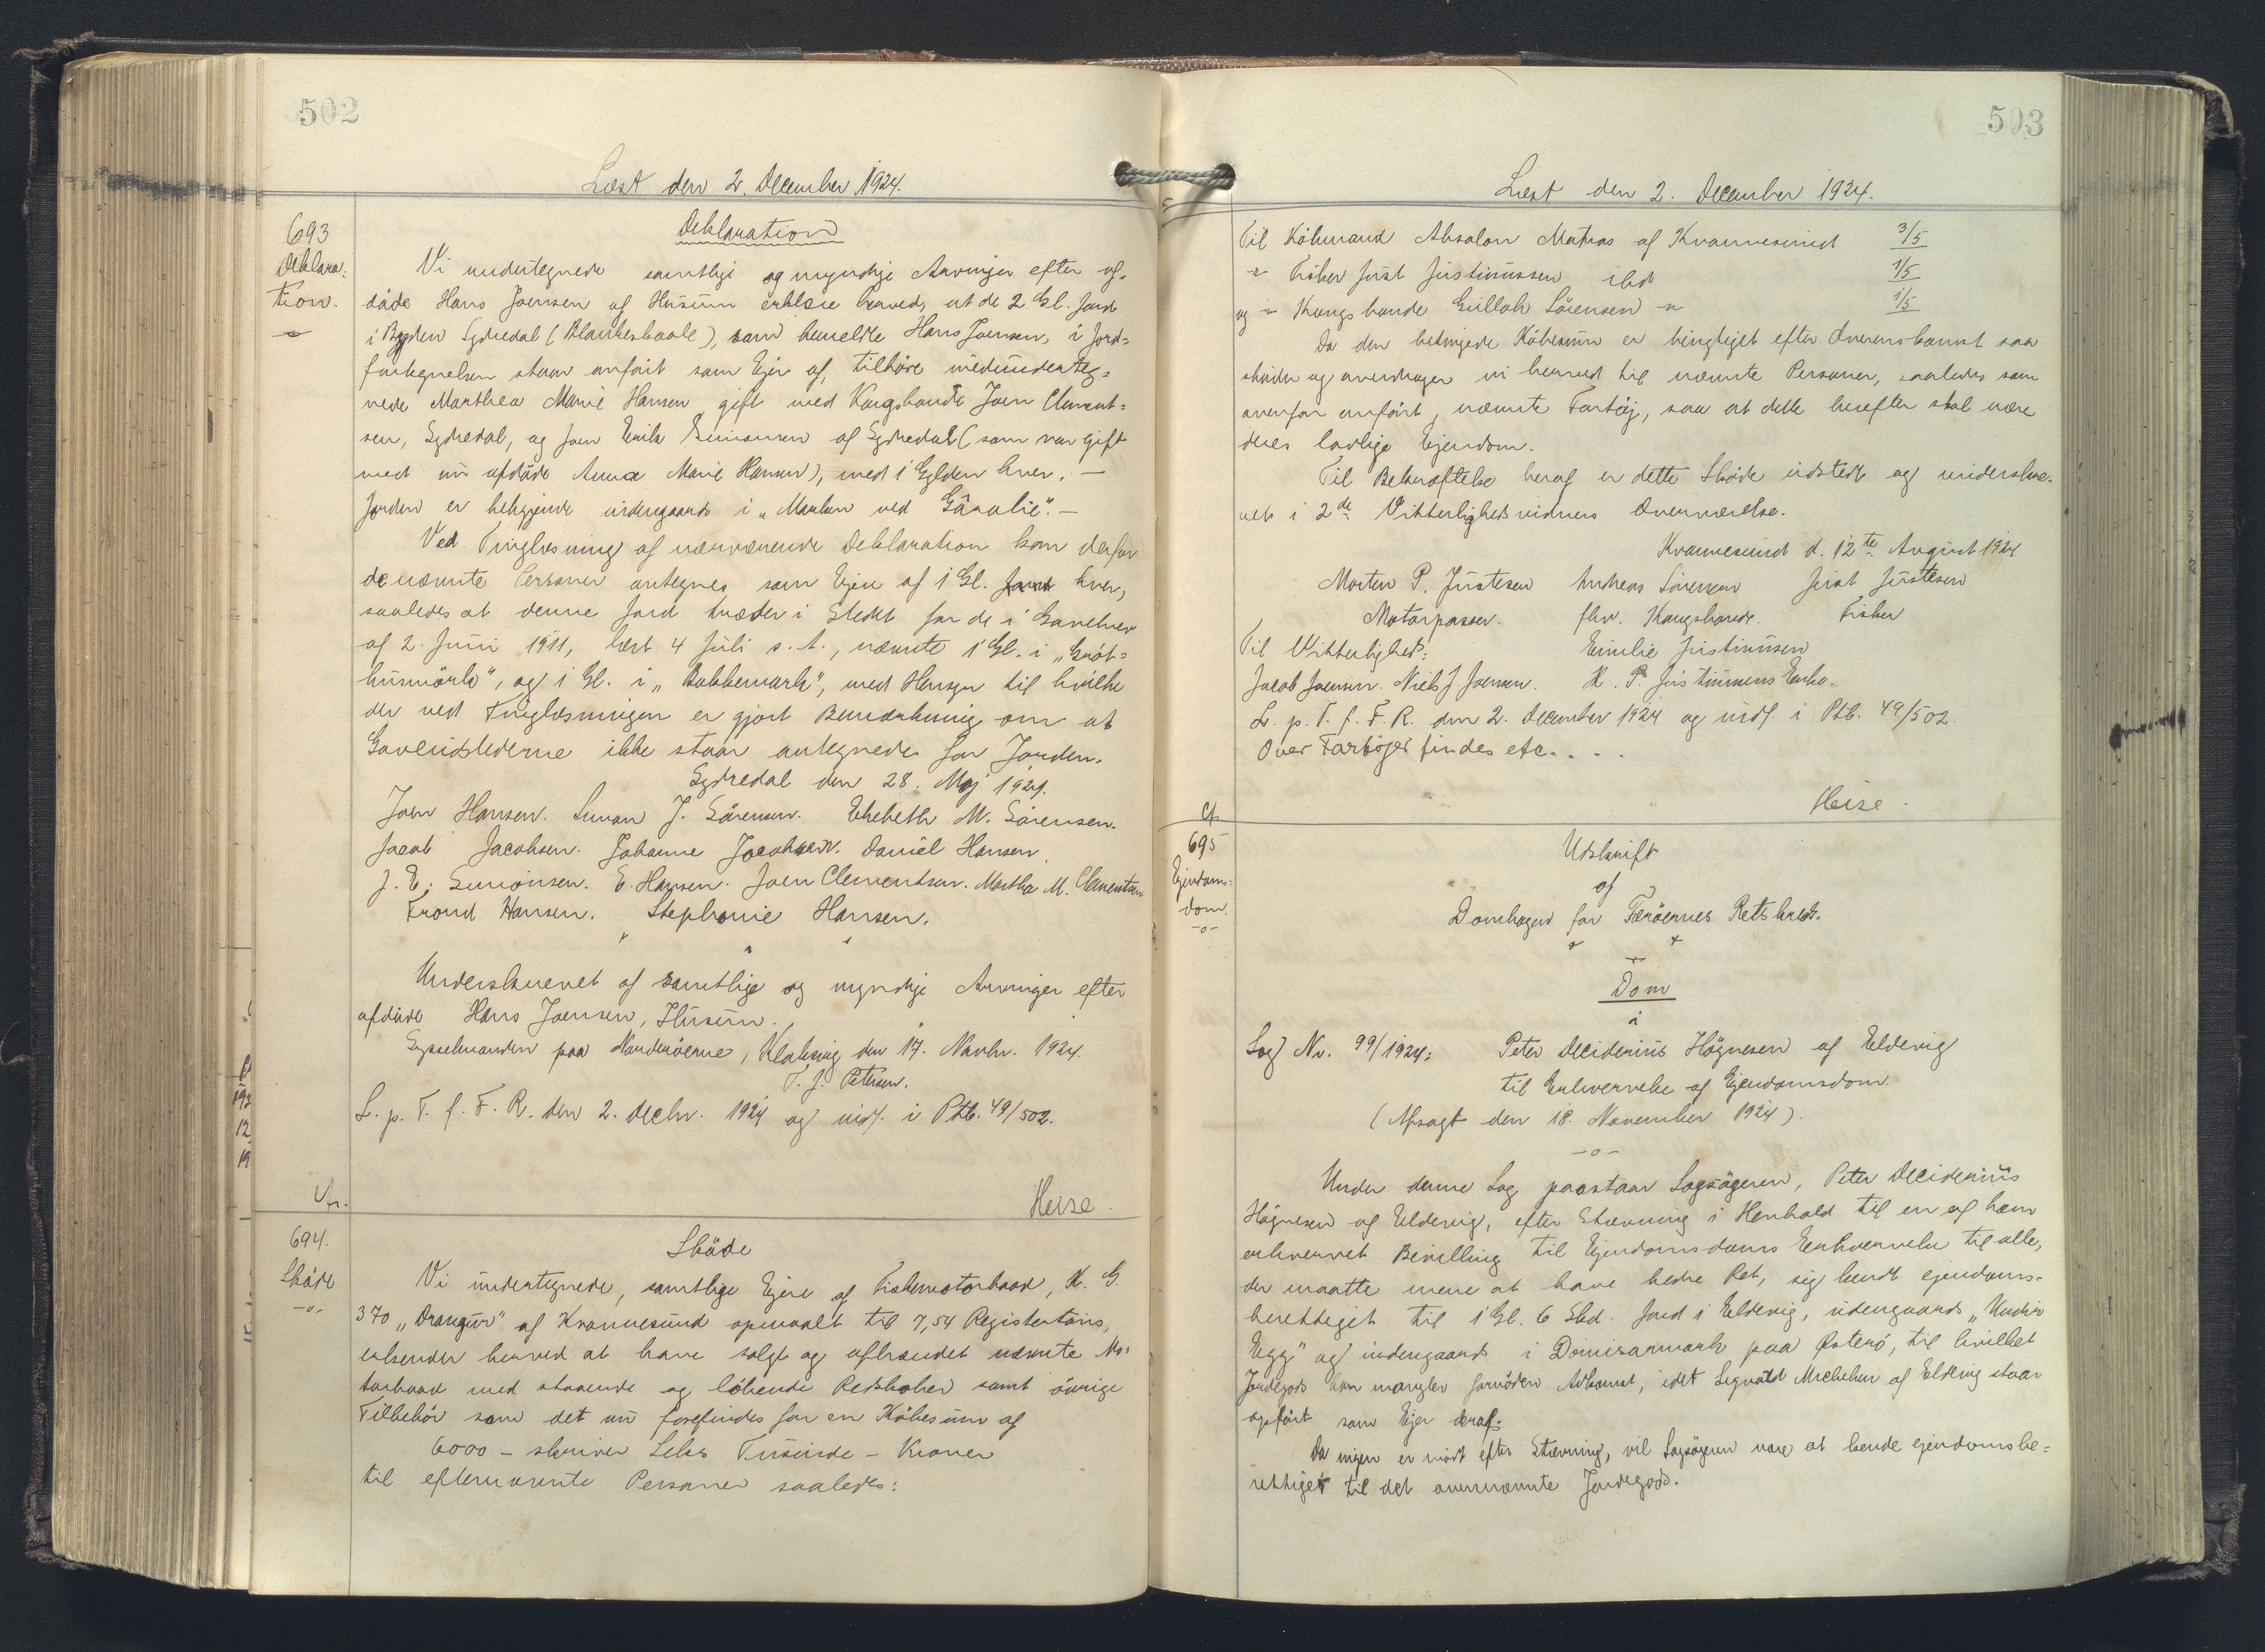 502
Læst den 2. December 1924.
693
Deklara-
tion.
Deklaration
Vi undertegnede samtlige og myndige Arvinger efter af-
døde Hans Joensen af Husum erklære herved, at de 2 Gl. Jord
i Bygden Sydredal (Blankeskaale), som bemeldte Hans Joensen, i Jord-
fortegnelsen staar anført som Ejer af, tilhøre medunderteg-
nede Marthea Marie Hansen gift med Kongsbonde Joen Clement-
sen, Sydredal, og Joen Erik Simonsen af Sydredal (som var gift
med nu afdøde Anna Marie Hansen), med 1 Gylden hver. —
Jorden er beliggende indengaards i „Marken ved Gåralië". —
Ved Tinglæsning af nærværende Deklaration kan derfor
de nævnte Personer antegnes som Ejere af 1 Gl. Jord hver,
saaledes at denne Jord træder i Stedet for de i Gavebrev
af 2. Juni 1911, læst 4 Juli s. A., nævnte 1 Gl. i „Grót-
húsmörk", og 1 Gl. i „Bakkemark", med Hensyn til hvilke
der ved Tinglæsningen er gjort Bemærkning om at
Gaveudstederne ikke staar antegnede for Jorden.
Sydredal den 28. Maj 1924.
Joen Hansen. Simon J. Sörensen. Elsebeth M. Sörensen.
Jacob Jacobsen. Johanne Jacobsen. Daniel Hansen.
J. E. Simonsen. E. Hansen. Joen Clementsen. Martha M. Clementsen
Trond Hansen. Stephanie Hansen.
Underskrevet af samtlige og myndige Arvinger efter
afdøde Hans Joensen, Husum.
Sysselmanden paa Norderöerne, Klaksvig den 17. Novbr. 1924.
T. J. Petersen.
L. p. T. f. F. R. den 2. Decbr. 1924 og indf. i Ptb. 49/502.
Heise.
Cfr.
694.
Sköde
-o-
Sköde
Vi undertegnede, samtlige Ejere af Fiskemotorbaad, K. G.
370 „Drangur" af Kvannesund opmaalt til 7,54 Registertons,
erkender herved at have solgt og afhændet nævnte Mo-
torbaad med staaende og löbende Redskaber samt övrige
Tilbehör som det nu forefindes for en Köbesum af
6000 - skriver Seks Tusinde - Kroner
til efternævnte Personer saaledes:
503
Læst den 2. December 1924.
Til Köbmand Absalon Matras af Kvannesund 3/5
-"- Fisker Just Justinussen ibd 1/5
og -"- Kongsbonde Gullak Sörensen -"- 1/5
Da den betingede Köbesum er berigtiget efter Overenskomst saa
sköder og overdrager vi herved til nævnte Personer, saaledes som
ovenfor anført, nævnte Fartöj, saa at dette herefter skal være
deres lovlige Ejendom.
Til Bekræftelse heraf er dette Sköde udstedt og underskre-
vet i 2de Vitterlighedsvidners Overværelse.
Kvannesund d. 12te August 1924
Morten P. Justesen Andreas Sörensen Just Justesen
Motorpasser. fhv. Kongsbonde. Fisker
Til Vitterlighed: Emilie Justinusen
Jacob Joensen. Niels J. Joensen. H. P. Justinusens Enke.
L. p. T. f. F. R. den 2. December 1924 og indf. i Ptb. 49/502.
Over Fartöjet findes etc. . . .
Heise.
Cf.
695
Ejendoms-
dom.
-o-
Udskrift
af
Dombogen for Færöernes Retskreds.
Dom
i
Sag Nr. 99/1924: Peter Deciderius Högnesen af Eldevig
til Erhvervelse af Ejendomsdom.
(Afsagt den 18. November 1924).
-o-
Under denne Sag paastaar Sagsögeren, Peter Deciderius
Högnesen af Eldevig, efter Stævning i Henhold til en af ham
erhvervet Bevilling til Ejendomsdoms Erhvervelse til alle,
der maatte mene at have bedre Ret, sig kendt ejendoms-
berettiget til 1 Gl. 6 Skd. Jord i Eldevig, udengaards „Undir
Egg" og indengaards i Domisarmark paa Österö, til hvilket
Jordegods han mangler fornöden Adkomst, idet Sigvald Michelsen af Eldevig staar
opfört som Ejer deraf.
Da ingen er mödt efter Stævning, vil Sagsögeren være at kende ejendomsbe-
rettiget til det ovennævnte Jordegods.